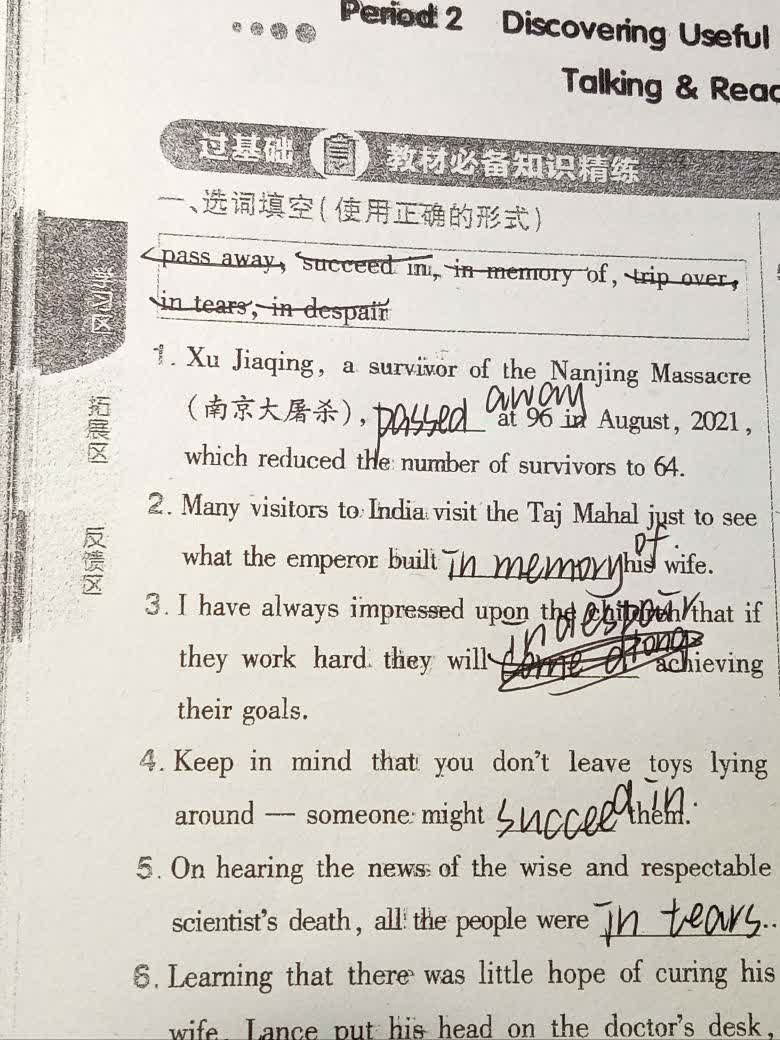 Period 2 Discovering Useful
Talking & Read
过基础 教材必备知识精练
一、选词填空(使用正确的形式)
pass away, succeed in, in memory of, trip over,
in tears, in despair
1. Xu Jiaqing, a survivor of the Nanjing Massacre
(南京大屠杀), passed away at 96 in August, 2021,
which reduced the number of survivors to 64.
2. Many visitors to India visit the Taj Mahal just to see
what the emperor built in memory of his wife.
3. I have always impressed upon the children that if
they work hard they will in despair achieving
their goals.
4. Keep in mind that you don't leave toys lying
around — someone might succeed in them.
5. On hearing the news of the wise and respectable
scientist's death, all the people were in tears.
6. Learning that there was little hope of curing his
wife, Lance put his head on the doctor's desk,
拓展区
反馈区